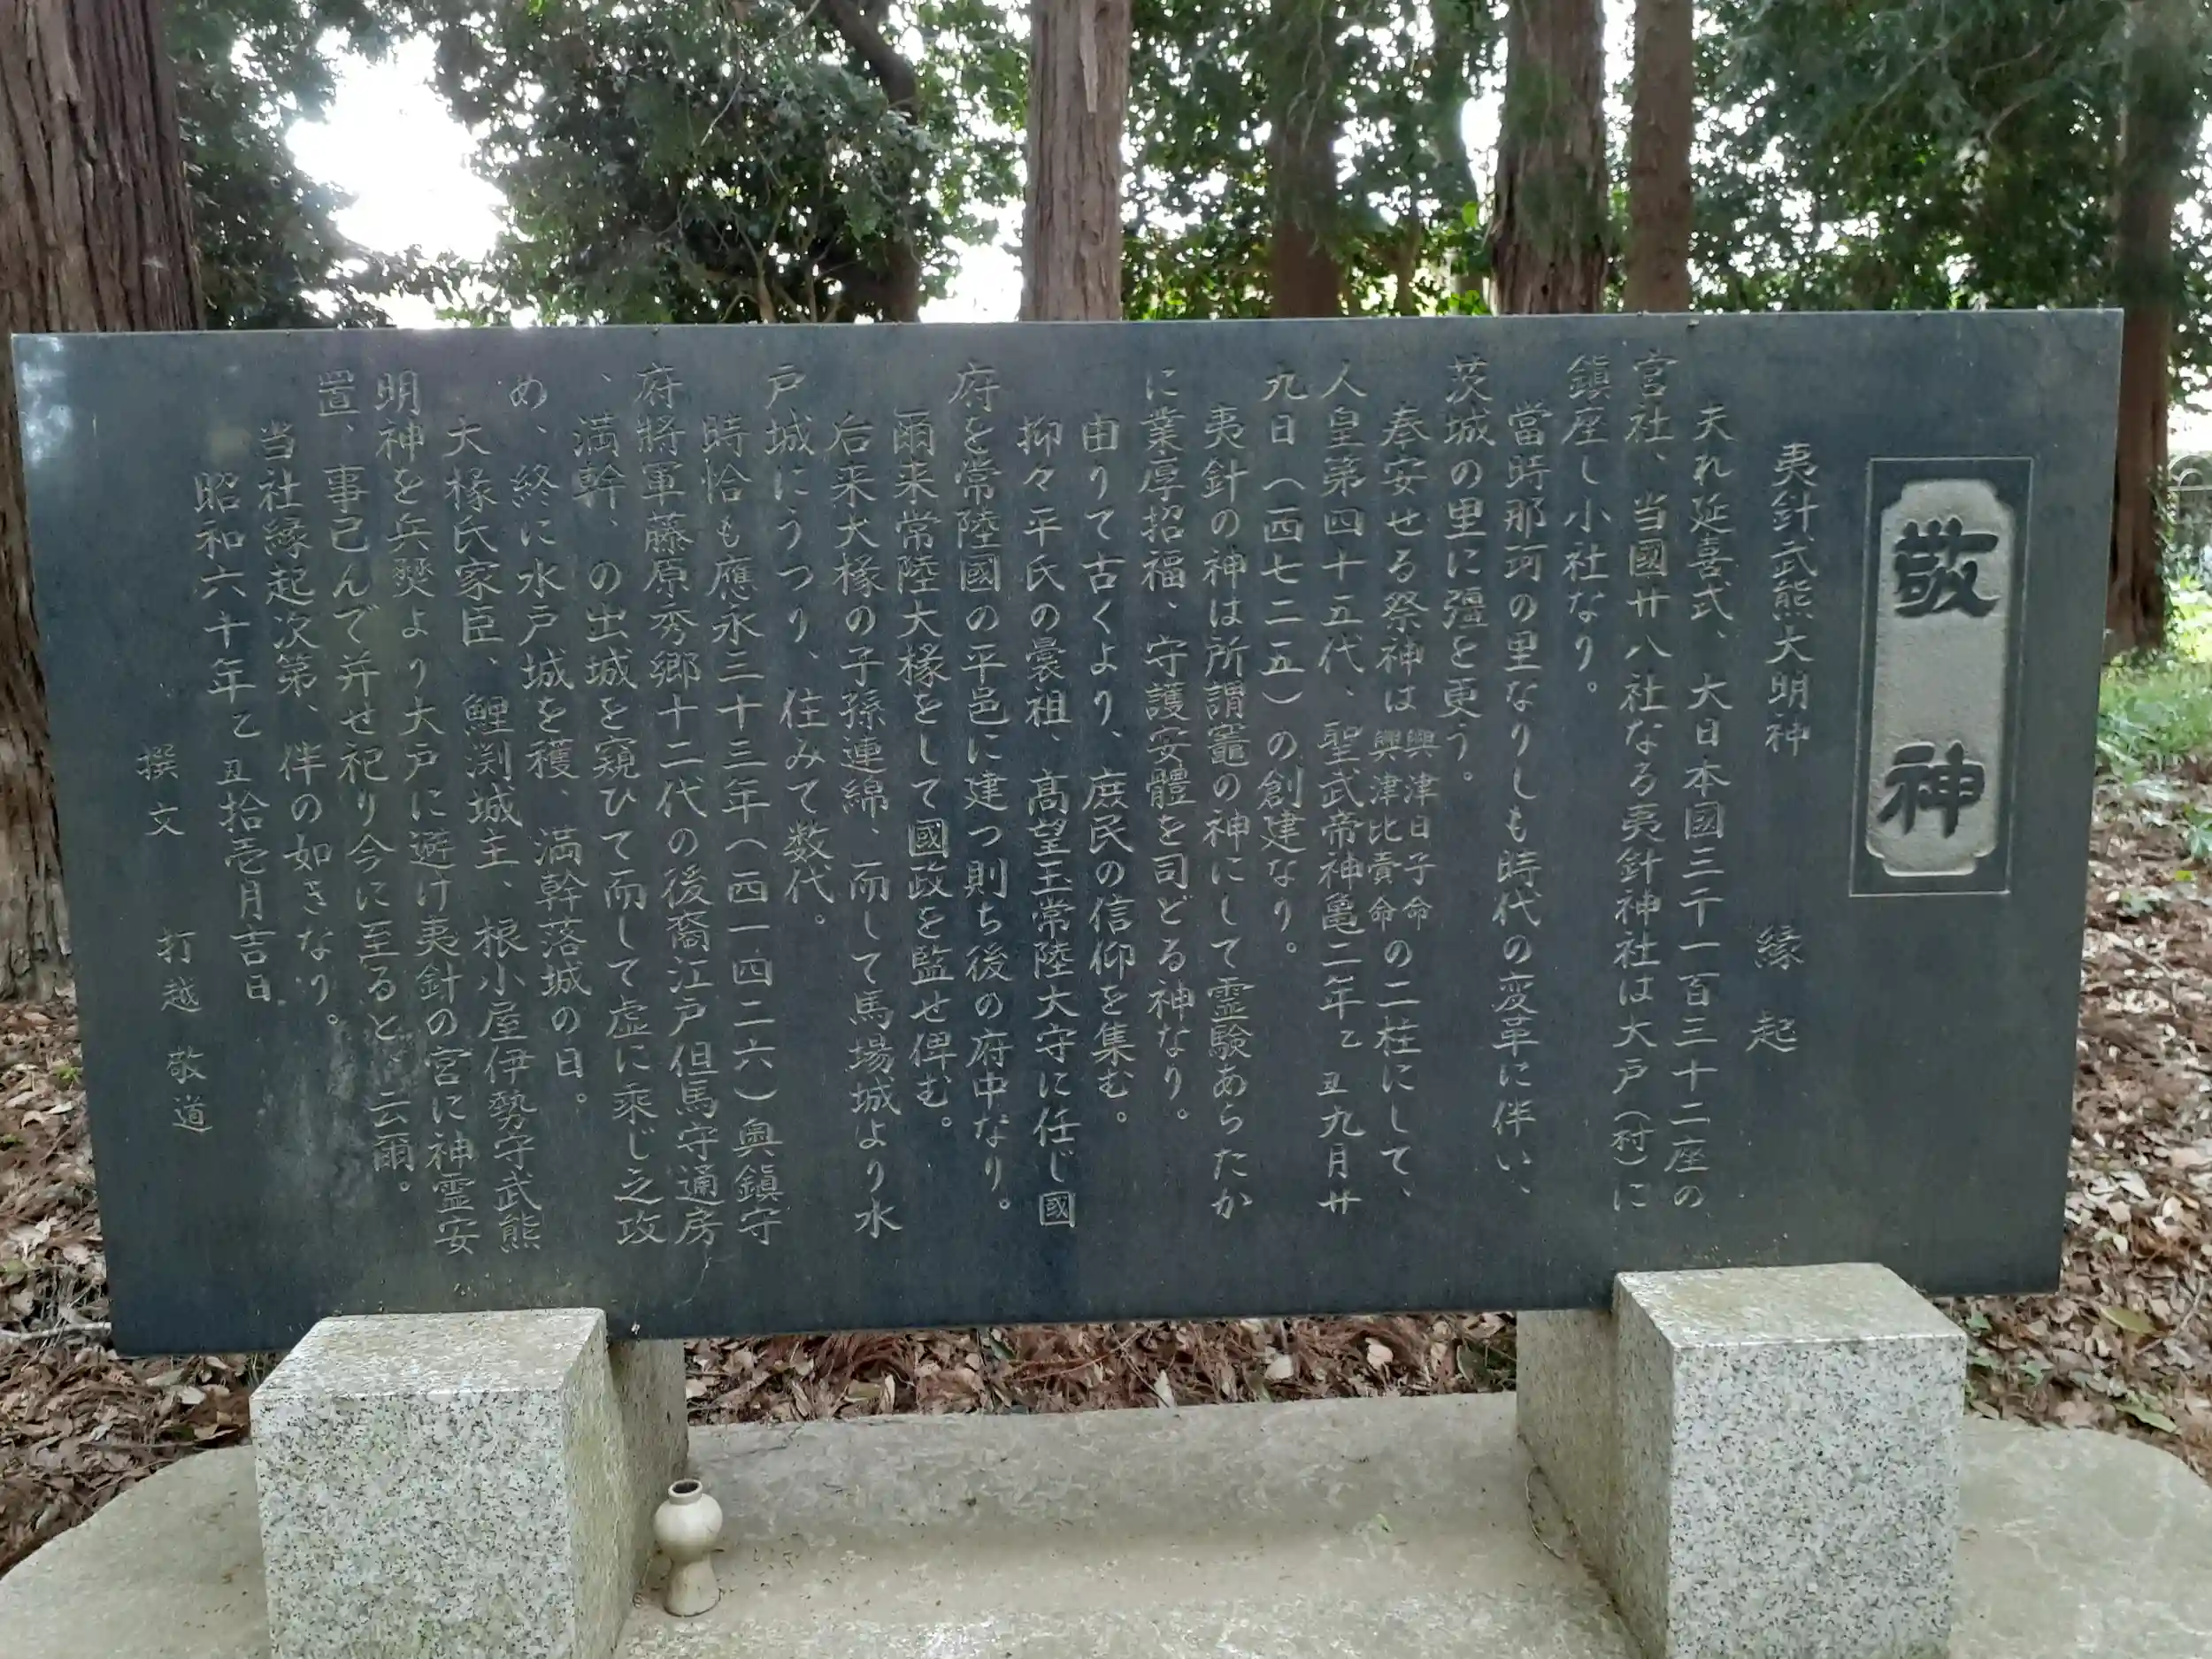 敬神
夷針武熊大明神　縁起
夫れ延喜式、大日本國三千一百三十二座の
宮社、当國廿八社なる夷針神社は大戸（村）に
鎮座し小社なり。
當時那珂の里なりしも時代の変革に伴い、
茨城の里に彊を更う。
奉安せる祭神は興津日子命興津比賣命の二柱にして、
人皇第四十五代、聖武帝神亀二年乙丑九月廿
九日（西七二五）の創建なり。
夷針の神は所謂竈の神にして霊験あらたか
に業厚招福、守護安體を司どる神なり。
由りて古くより、庶民の信仰を集む。
抑々平氏の曩祖、髙望王常陸大守に任じ國
府を常陸國の平邑に建つ則ち後の府中なり。
爾来常陸大掾をして國政を監せ俾む。
后来大掾の子孫連綿、而して馬場城より水
戸城にうつり、住みて数代。
時恰も應永三十三年（西一四二六）奥鎮守
府將軍藤原秀郷十二代の後裔江戸但馬守通房
、満幹、の出城を窺ひて而して虚に乘じ之攻
め、終に水戸城を穫、満幹落城の日。
大掾氏家臣、鯉渕城主、根小屋伊勢守武熊
明神を兵燹より大戸に避け夷針の宮に神霊安
置、事已んで并せ祀り今に至ると云爾。
当社縁起次第、伴の如きなり。
昭和六十年乙丑拾壱月吉日
撰文　打越敬道